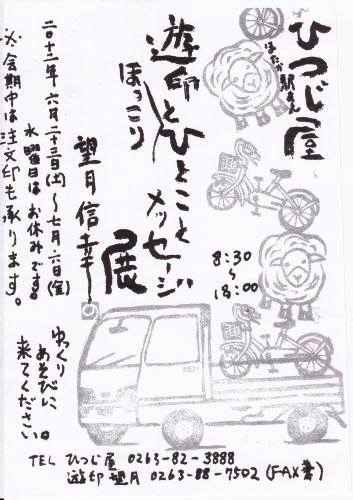 ひつじ屋
ほたか駅まえ
遊印とひとことメッセージ展
ほっこり
望月信幸
8:30
〜
18:00
二〇十二年 六月二十三日(土)〜七月六日(金)
水曜日はお休みです。
※会期中は注文印も承ります。
ゆっくり
あそびに
来てください。
TEL ひつじ屋 0263-82-3888
遊印 望月 0263-88-7502 (FAX兼)